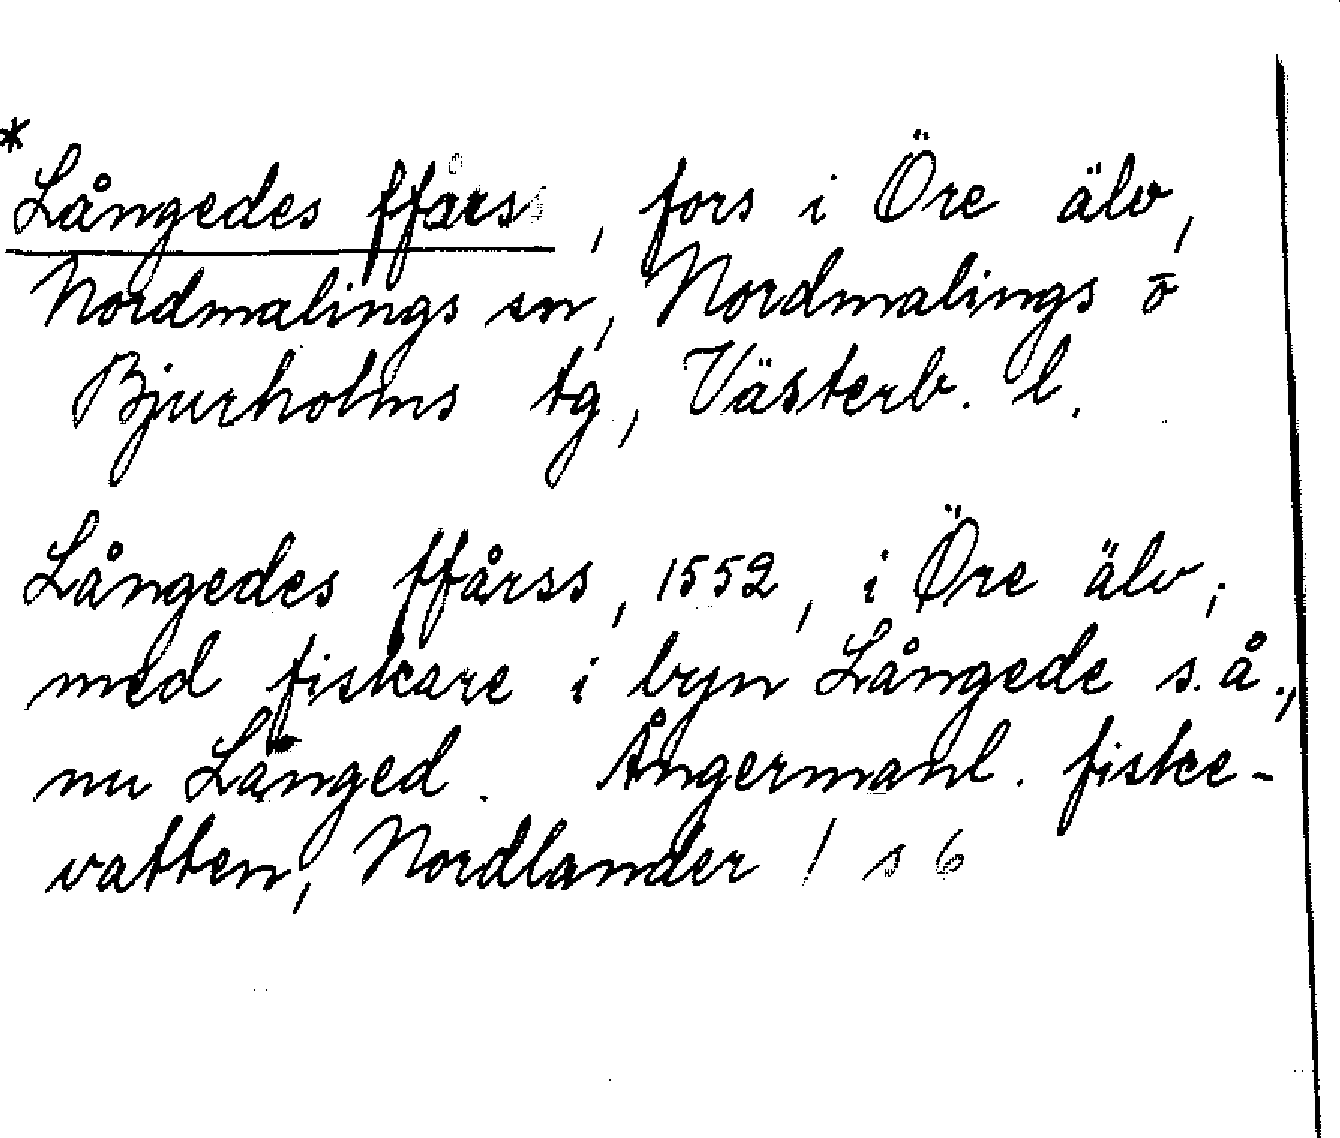 *Långedes ffårss, fors i Öre älv,
Nordmalings sn, Nordmalings o
Bjurholms tg, Västerb. l.
Långedes ffårss, 1552, i Öre älv;
med fiskare i byn Långede s. å.,
nu Långed. Ångermanl. fiske-
vatten, Nordlander 1 s 6